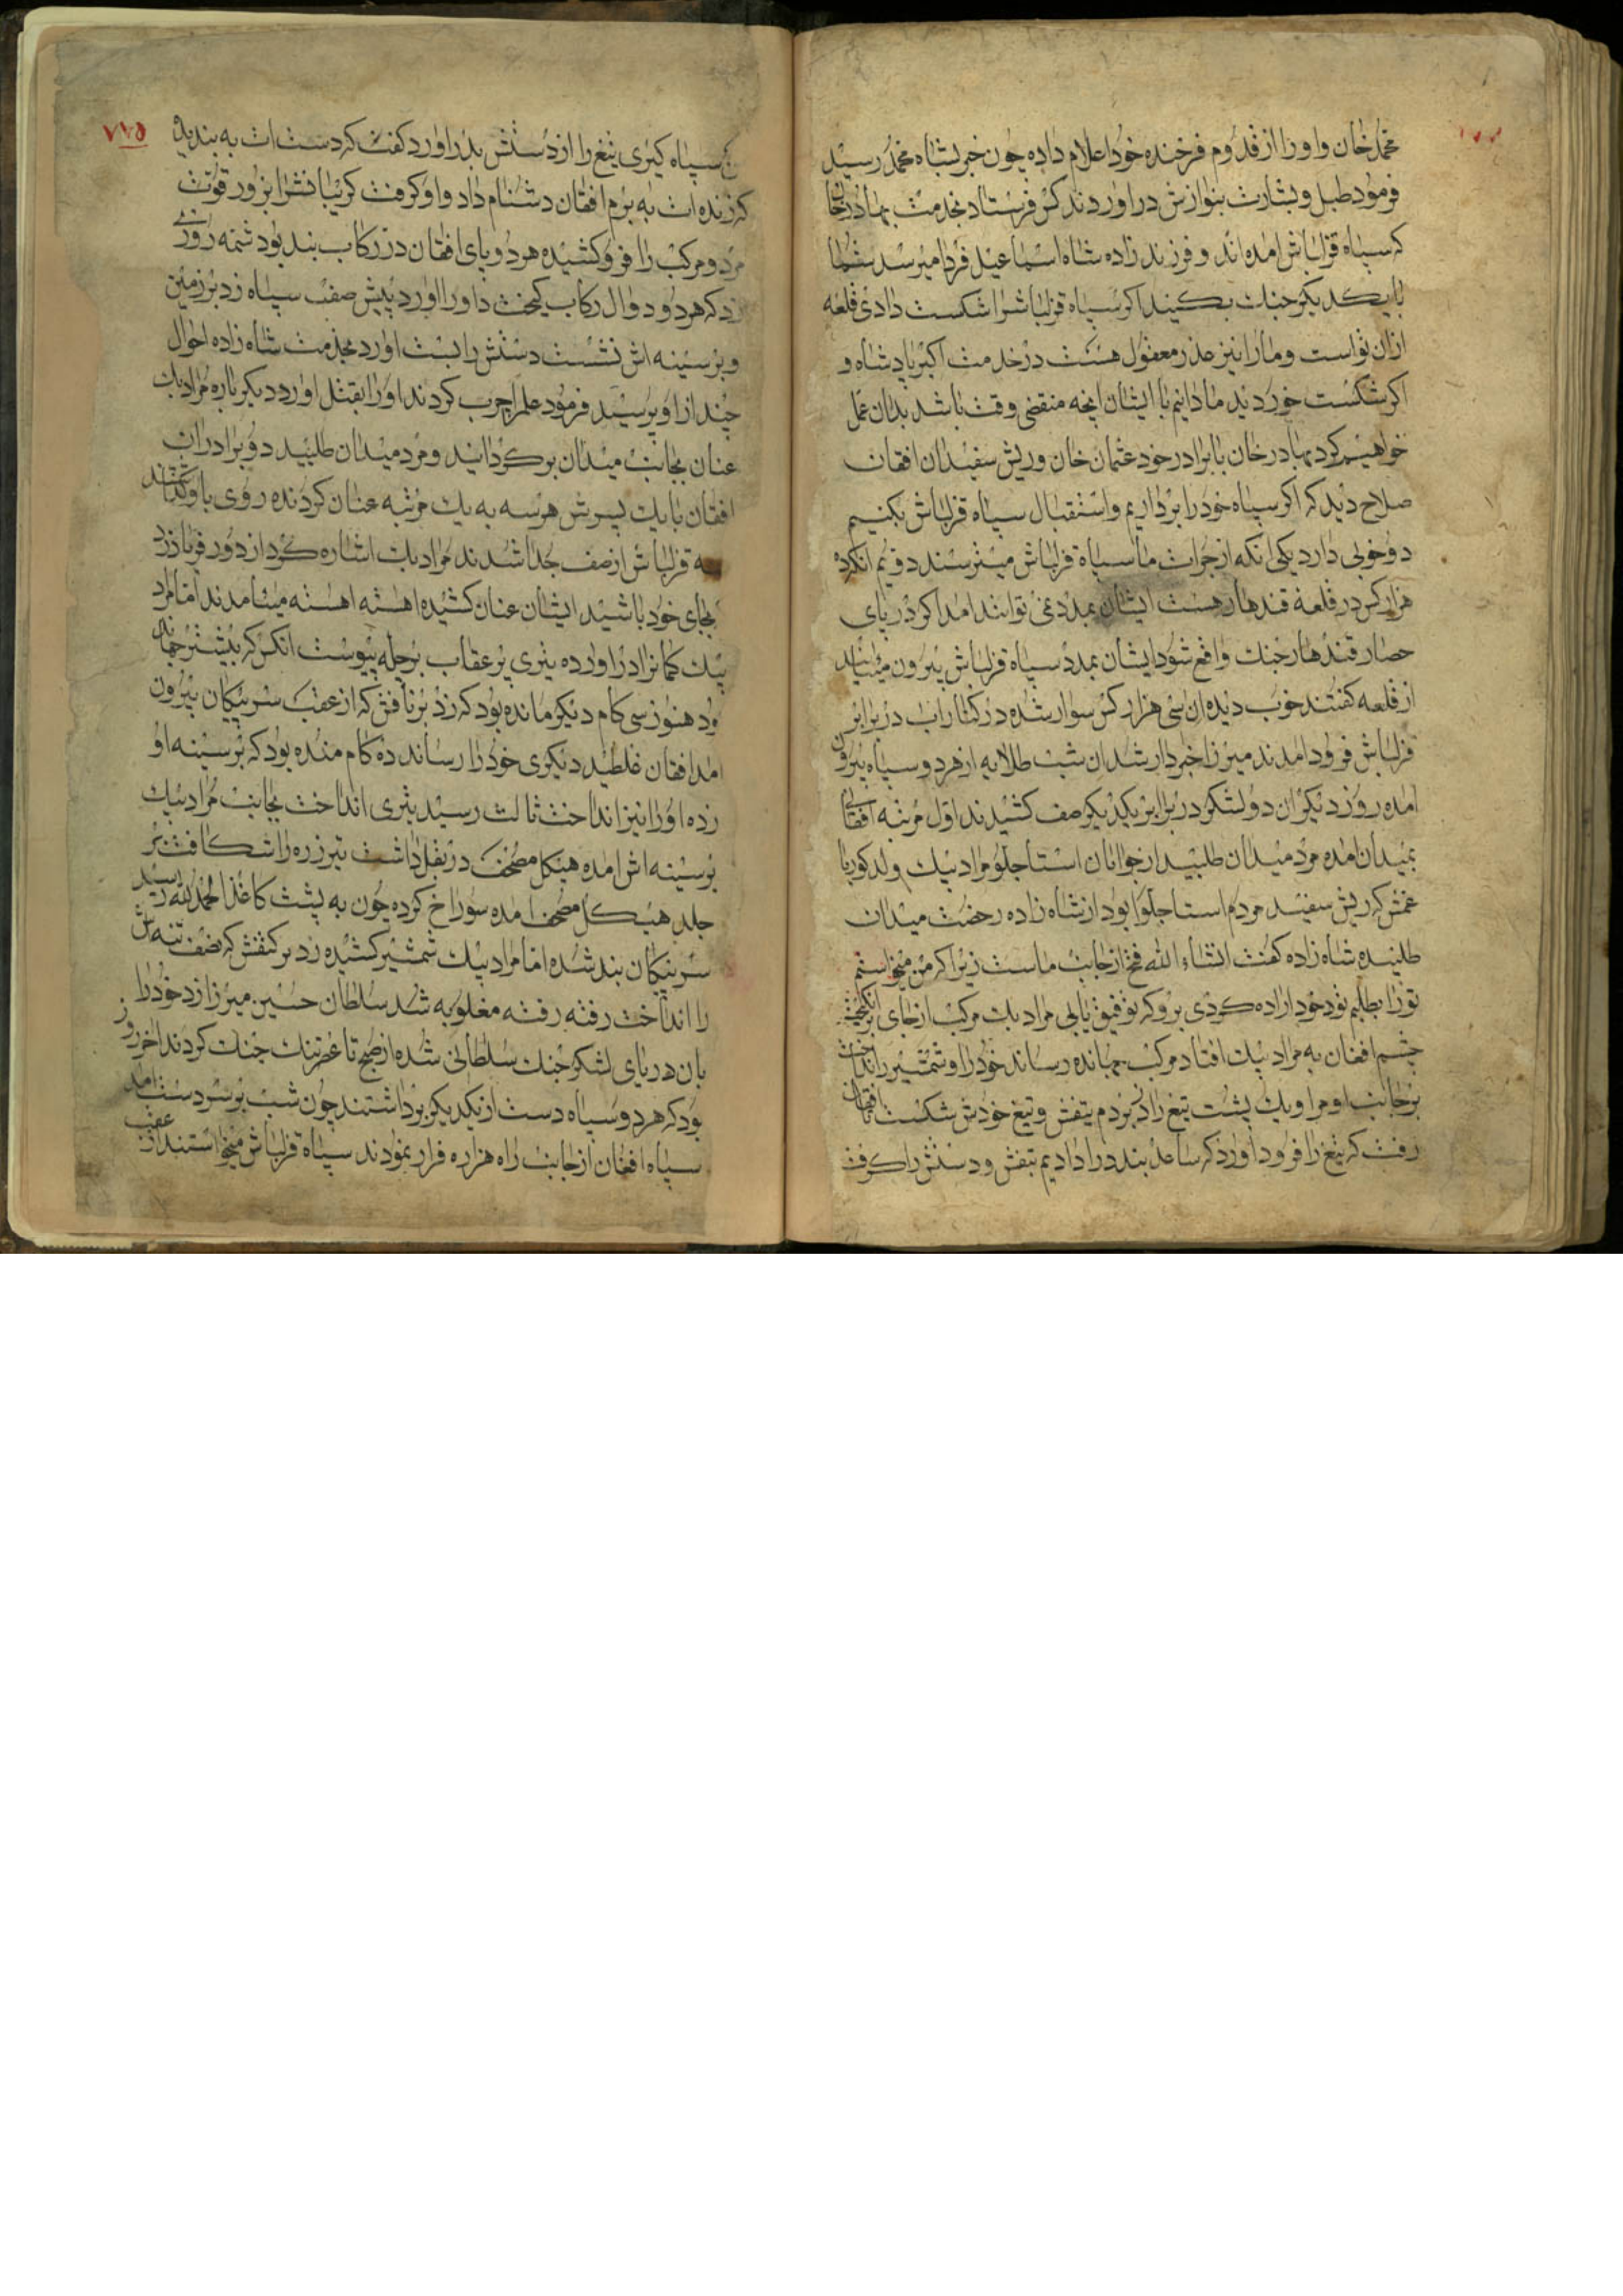 محمد خان واورا از قدوم فرخنده خود اعلام داده چون خبر بشاه محمد رسید
فرمود طبل و بشارت بنوازش دراوردند کس فرستاد بخدمت بهادر خان
که سپاه قزلباش امده اند و فرزند زاده شاه اسماعیل فردا میرسد شما
با یکدیکر جنك بکنید اکر سپاه قزلباشرا شکست دادی قلعه
ازان تواست ومارا نیز عذر معقول هست درخدمت اکبر پادشاه و
اکر شکست خوردید ما دانیم با ایشان انچه منقضی وقت باشد بدان عمل
خواهیم کرد بهادر خان با برادر خود عثمان خان وریش سفیدان افغان
صلاح دید که اکر سپاه خود را برداریم واستقبال سپاه قزلباش بکنیم
دو خوبی دارد یکی انکه از جرات ما سپاه قزلباش میترسند دویم انکه
هزار کس در قلعه قندهار هست ایشان بمدد نمی توانند امد اکر در پای
حصار قندهار جنك واقع شود ایشان بمدد سپاه قزلباش بیرون میایند
از قلعه کفتند خوب دیده ان سی هزار کس سوار شده در کنار اب در برابر
قزلباش فرود امدند میرزا خبردار شد ان شب طلایه از هر دو سپاه بیرون
امده روز دیکر ان دو لشکر در برابر یکدیکر صف کشیدند اول مرتبه افغانی
بمیدان امده مرد میدان طلبید از جوانان استاجلو مراد بیك ولد کور بابا
عمش که ریش سفید مردم استاجلو بود از شاه زاده رخصت میدان
طلبیده شاه زاده کفت انشاء الله فتح از جانب ماست زیرا که من میخواستم
تورا بطلبم تو خود اراده کردی برو که توفیق یابی مراد بك مرکب از جای برانکیخت
چشم افغان به مراد بیك افتاد مرکب جهانده رساند خود را وشمشیر را انداخت
بر جانب او مراد بیك پشت تیغ زاد بر دم تیغش وتیغ خودش شکست تا افغان
رفت که تیغ را فرود اورد که ساعد بند در داد بدم تیغش ودستش را کرفت
سپاه کیری تیغ را از دستش بدراورد کفت که دست ات به بند به
که زنده ات به برم افغان دشنام داد واو کرفت کریبانشرا بزور قوت
مرد ومرکب را فروکشیده هر دو پای افغان در رکاب بند بود شمه روزی
زد که هر دو دوال رکاب کیخت واورا اورد پیش صف سپاه زد بر زمین
وبر سینه اش نشست دستش را بست اورد بخدمت شاه زاده احوال
چند از او پرسید فرمود علم را چرب کردند اورا بقتل اورد دیکر باره مراد بك
عنان بجانب میدان برکردانید ومرد میدان طلبید دو برادران
افغان با یك پسرش هر سه به یك مرتبه عنان کردنده روی باو کذاشتند
سپه قزلباش از صف جدا شدند مراد بك اشاره کرد از دور فریاد زد
بجای خود باشید ایشان عنان کشیده اهسته اهسته میامدند اما مراد
بیك کمانرا دراورده تیری پر عقاب بر چله پیوست انکس که بیشتر جهانده
بود هنوز سی کام دیکر مانده بود که زد بر نافش که از عقب سر پیکان بیرون
امد افغان غلطید دیکری خود را رساند ده کام منده بود که بر سینه او
زده اورا نیز انداخت ثالث رسید تیری انداخت بجانب مراد بیك
بر سینه اش امده هیکل مصحف در بغل داشت تیر زره را شکافت بر
جلد هیکل مصحف امده سوراخ کرده چون به پشت کاغذ الحمد لله رسید
سر پیکان بند شده اما مراد بیك شمشیر کشیده زد بر کتفش که نصف تنه اش
را انداخت رفته رفته مغلوبه شد سلطان حسین میرزا زد خود را
بان دریای لشکر جنك سلطانی شده از صبح تا عصر تنك جنك کردند اخر روز
بود که هر دو سپاه دست از یکدیکر برداشتند چون شب بر سر دست امد
سپاه افغان از جانب راه هزاره فرار نمودند سپاه قزلباش میخواستند از عقب
۷۷۵